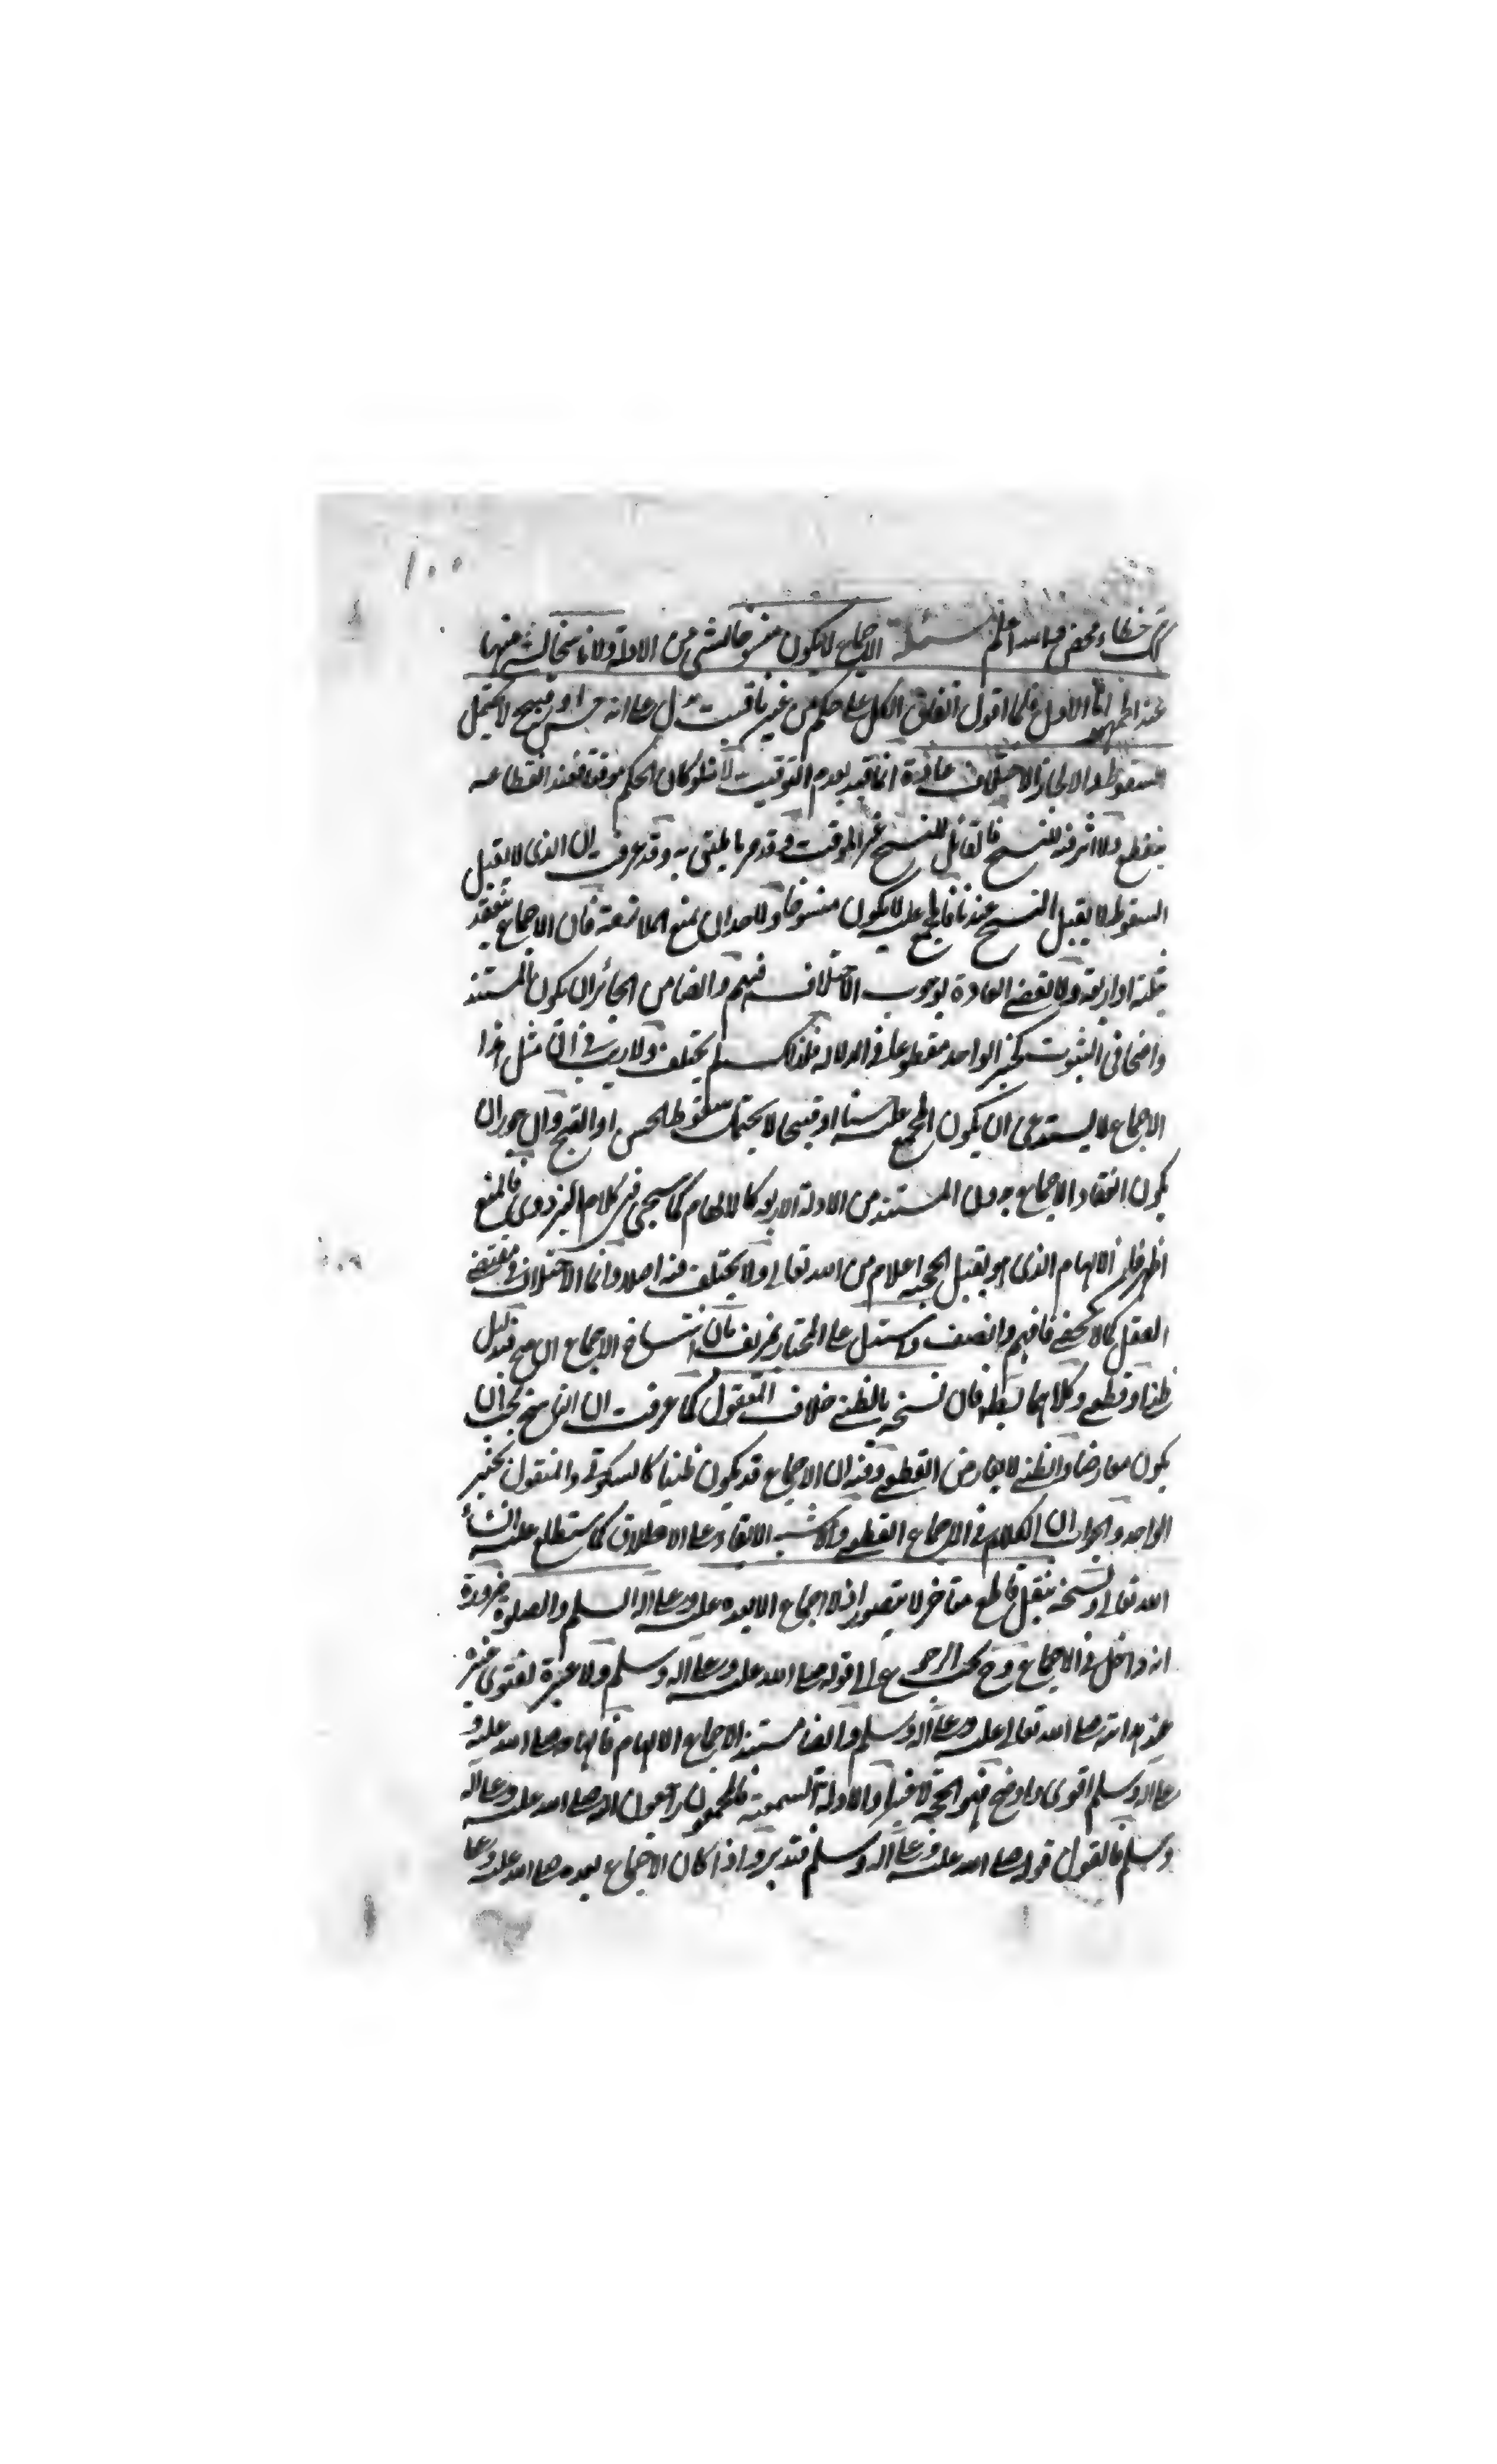 ١٠٠
خطاء محض والله اعلم مسئلة الاجماع لا يكون منسوخا لشئ من الادلة ولا ناسخا لشئ منها
عند الجمهور اما الاول فلما اقول اتفاق الكل على حكم من غير تاقيت يدل على انه حسن او قبيح لا يحتمل
السقوط والا لجاز الاختلاف عادة انما قيد بعدم التوقيت لانه لو كان الحكم موقتا فعند انقطاعه
ينقطع ولا اثر فيه للنسخ فالقابل للنسخ غير الموقت وقد مر ما يلقى به وقد عرفت ان الذي لا يقبل
السقوط لا يقبل النسخ عندنا فالمجمع عليه لا يكون منسوخا ولاحد ان يمنع الملازمة فان الاجماع ينعقد
بثلثة او اربعة ولا تقضى العادة بوجوب الاختلاف فيهم وايضا من الجائز ان يكون المستند
واضحا في الثبوت كخبر الواحد مقطوعا في الدلالة فلذلك لم يختلف ولا ريب في ان مثل هذا
الاجماع لا يستدعى ان يكون المجمع عليه حسنا او قبيحا لا يحتمل سقوط الحسن او القبح وان جوز ان
يكون انعقاد الاجماع بدون المستند من الادلة الاربعة كالالهام كما سيجئ في كلام البزدوى فالمنع
اظهر فان الالهام الذى هو يقبل الحجية اعلام من الله تعالى ولا يختلف فيه اصلا وانما الاختلاف في مقتضى
العقل كما لا يخفى فافهم وانصف واستدل على المختار بان انتساخ الاجماع ان صح فبدليل
ظنى او قطعى وكلاهما باطل فان نسخه بالظنى خلاف المعقول كما عرفت ان الناسخ يجب ان
يكون معارضا والظنى لا يعارض القطعى وفيه ان الاجماع قد يكون ظنيا كالسكوتى والمنقول بخبر
الواحد والجواب ان الكلام في الاجماع القطعى والاشبه الابقاء على الاطلاق كما ستطلع عليه ان شاء
الله تعالى ونسخه بنقل قاطع متاخر لا يتصور اذ لا اجماع الا بعده عليه وعلى اله السلم والصلوة ضرورة
انه داخل في الاجماع وح يجب الرجوع الى قوله صلى الله عليه وعلى اله وسلم ولا عبرة لفتوى غيره
صلى الله تعالى عليه وعلى اله وسلم وايضا مستند الاجماع الالهام فالهامه صلى الله عليه و
على اله وسلم اقوى واوضح فهو الحجة لا غير والادلة السمعية فالمجمعون راجعون اليه صلى الله عليه وعلى اله
وسلم فالقول قوله صلى الله عليه وعلى اله وسلم فتدبر واذا كان الاجماع بعده صلى الله عليه وعلى